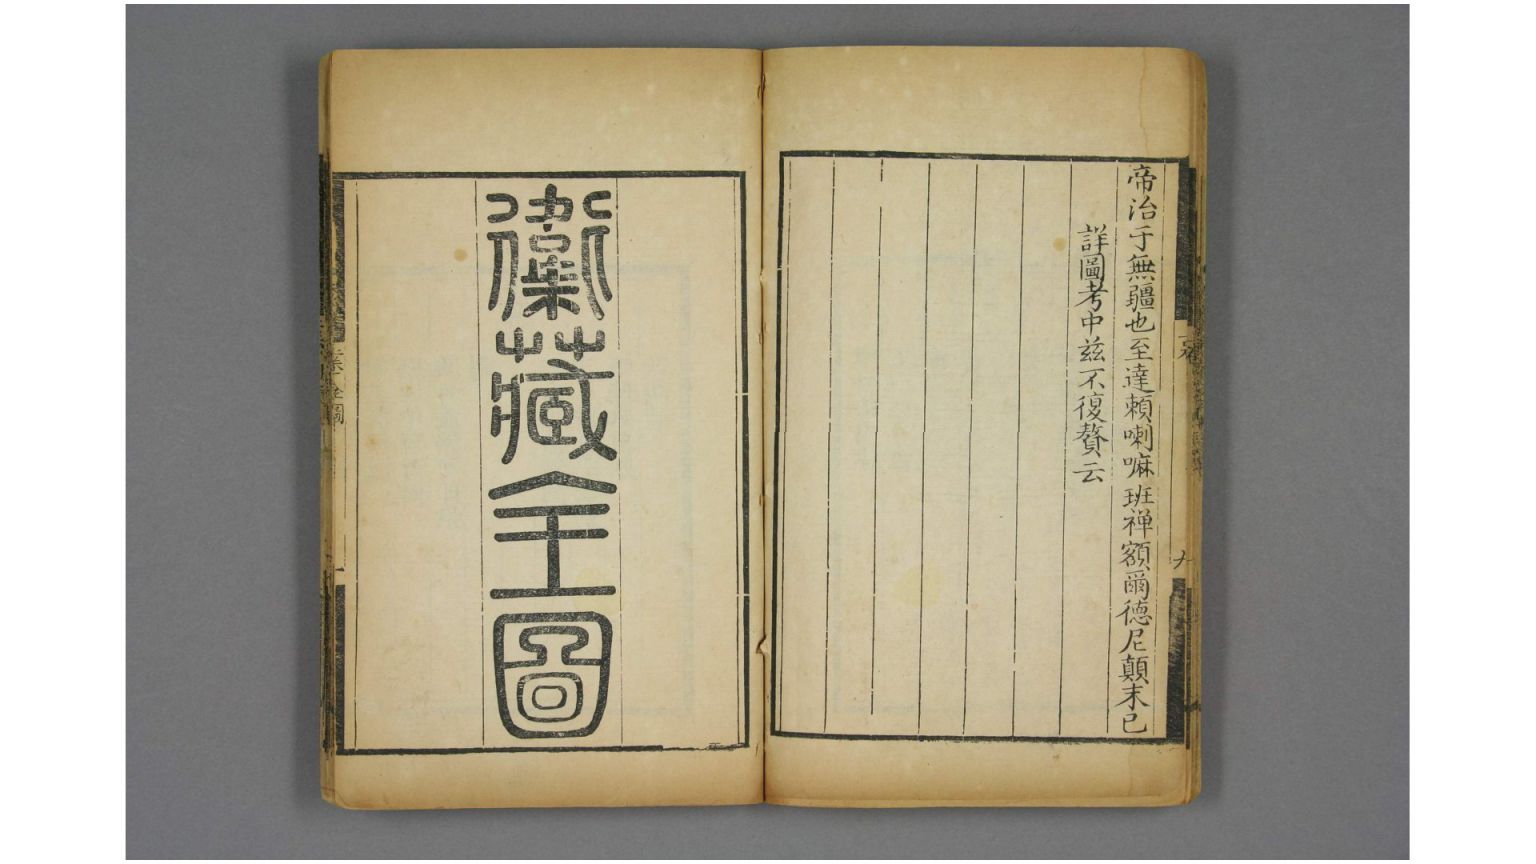 帝治于無疆也至達賴喇嘛班禅額爾德尼顛末已
詳圖考中兹不復贅云
九
衛藏全圖